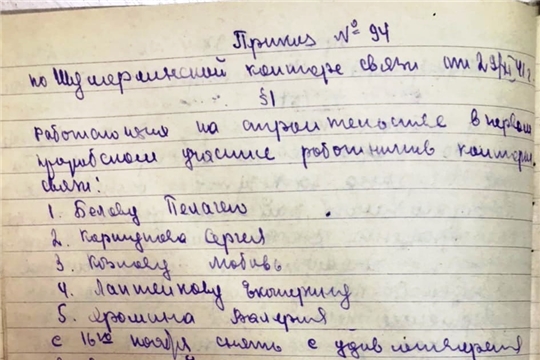 Приказ № 94
по Шумерлинской конторе связи от 29/XI 41 г.
§1
Работающих на строительстве в первом
прорабском участке работников конторы
связи:
1. Белову Пелагею
2. Коршунова Сергея
3. Козлову Любовь
4. Лаптейкову Екатерину
5. Яромина Валерия
с 16го ноября снять с